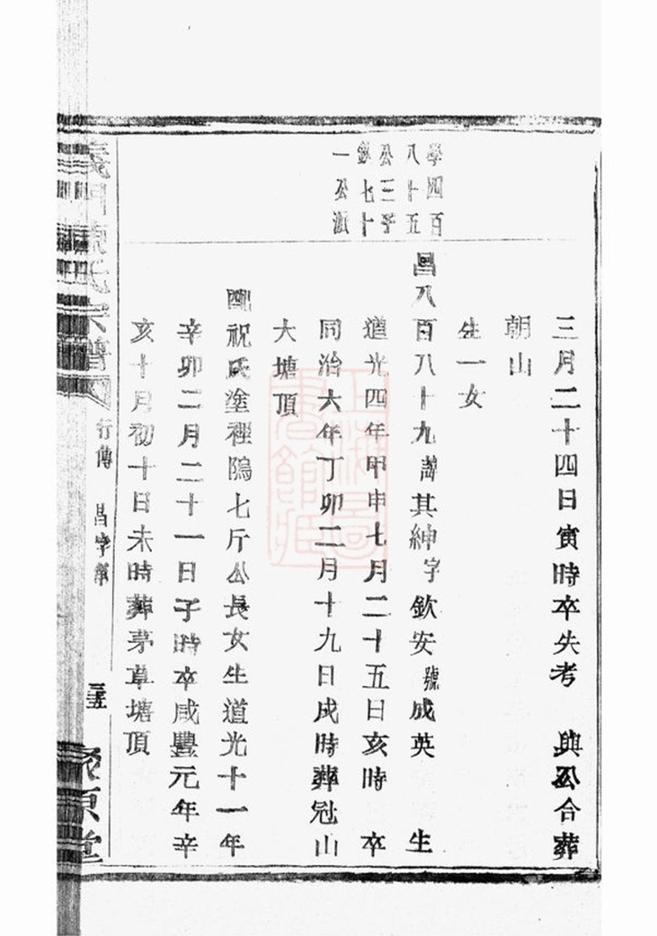 三月二十四日寅時卒失考　與公合葬
朝山
生一女
學四百
八十五
公三子
欽七十
一公派
昌八百八十九諱其紳字欽安號成英　生
道光四年甲申七月二十五日亥時　卒
同治六年丁卯二月十九日戌時葬冠山
大塘頂
配祝氏塗裡隝七斤公長女生道光十一年
辛卯二月二十一日子時卒咸豐元年辛
亥十月初十日未時葬茅草塘頂
義門陳氏宗譜
行傳　昌字輩
聚原堂